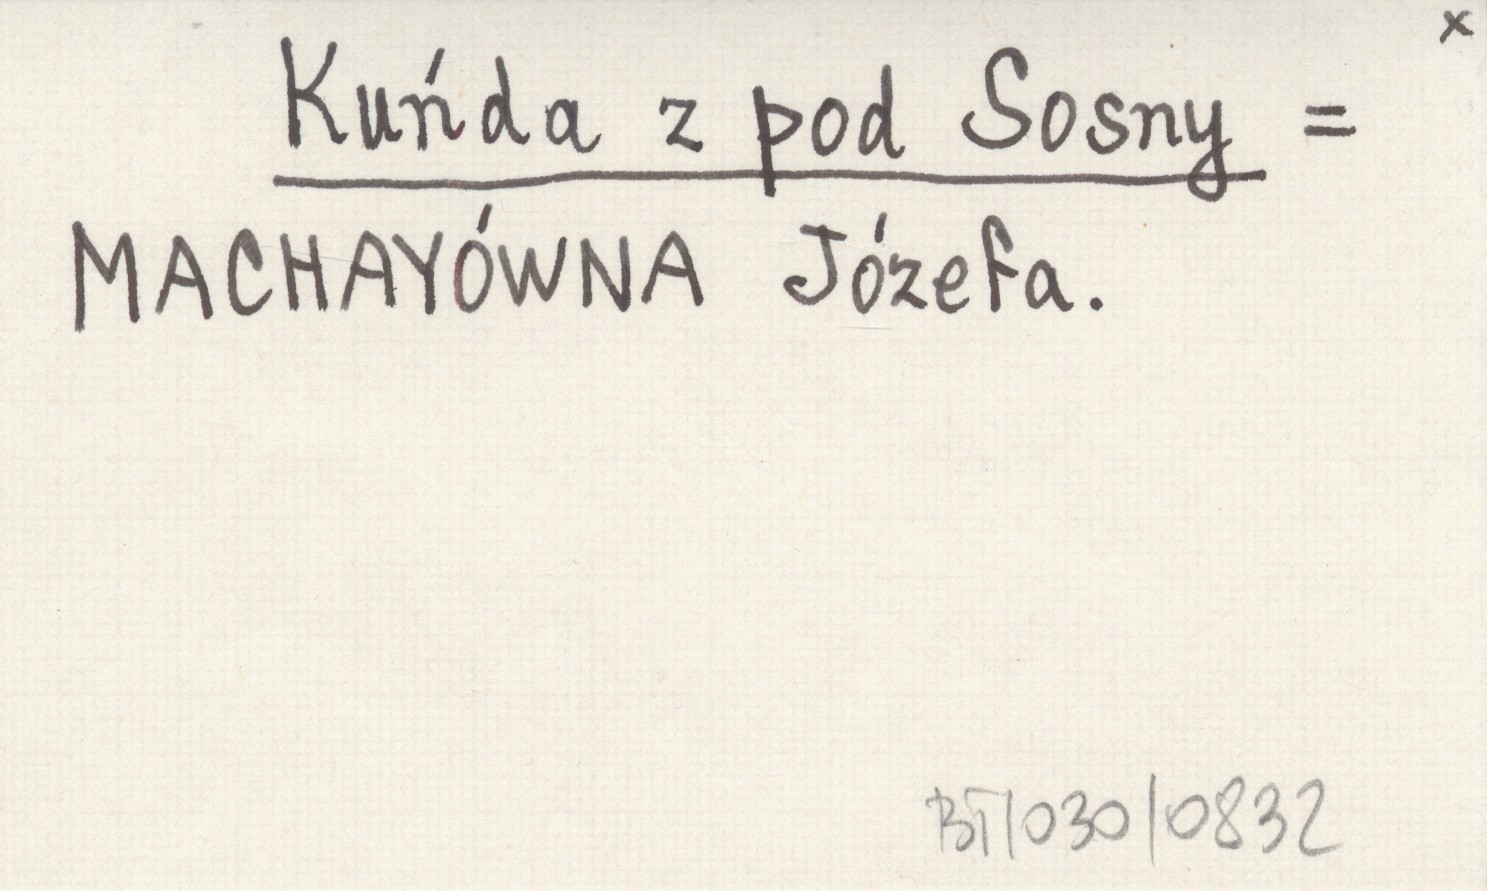 x
Kuńda z pod Sosny =
MACHAYÓWNA Józefa.
BT/030/0832